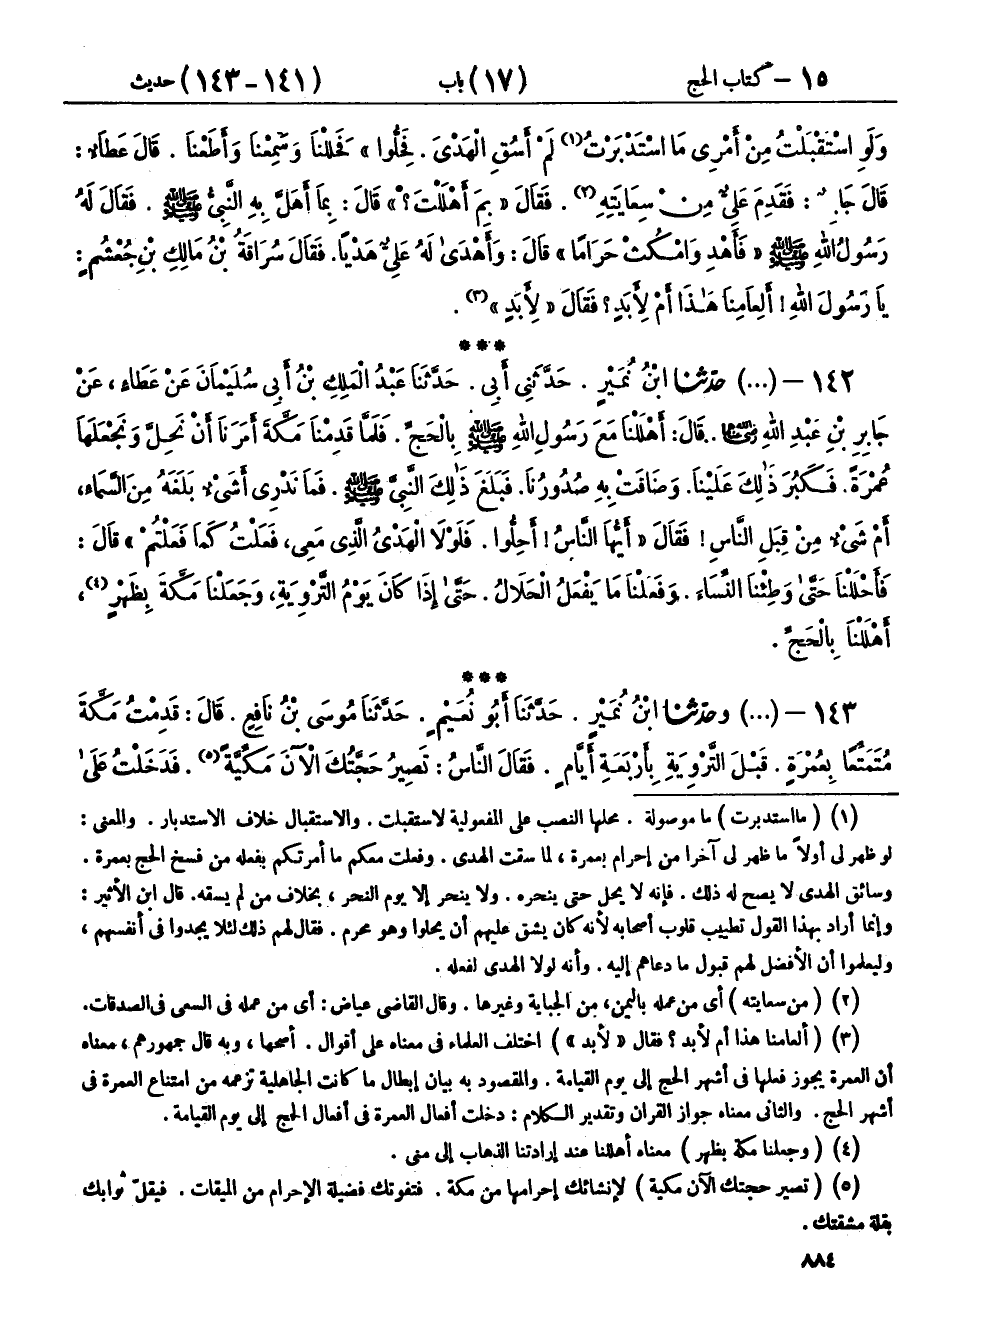 ١٥ – كتاب الحج (١٧) باب (١٤١ – ١٤٣) حديث
وَلَوِ اسْتَقْبَلْتُ مِنْ أَمْرِى مَا اسْتَدْبَرْتُ(١) لَمْ أَسُقِ الْهَدْىَ . فَحِلُّوا » فَحَلَلْنَا وَسَمِعْنَا وَأَطَعْنَا . قَالَ عَطَاءٌ :
قَالَ جَابِرٌ : فَقَدِمَ عَلِىٌّ مِنْ سِعَايَتِهِ(٢) . فَقَالَ « بِمَ أَهْلَلْتَ ؟ » قَالَ : بِمَا أَهَلَّ بِهِ النَّبِىُّ ﷺ . فَقَالَ لَهُ
رَسُولُ اللهِ ﷺ « فَأَهْدِ وَامْكُثْ حَرَامًا » قَالَ : وَأَهْدَىٰ لَهُ عَلِىٌّ هَدْيًا. فَقَالَ سُرَاقَةُ بْنُ مَالِكِ بْنِ جُعْشُمٍ :
يَا رَسُولَ اللهِ ! أَلِعَامِنَا هَـٰذَا أَمْ لِأَبَدٍ ؟ فَقَالَ « لِأَبَدٍ »(٣) .
***
١٤٢ – (...) حدّثنا ابْنُ نُمَيْرٍ . حَدَّثَنِى أَبِى . حَدَّثَنَا عَبْدُ الْمَلِكِ بْنُ أَبِى سُلَيْمَانَ عَنْ عَطَاءٍ ، عَنْ
جَابِرِ بْنِ عَبْدِ اللهِ رضي الله عنهما . قَالَ : أَهْلَلْنَا مَعَ رَسُولِ اللهِ ﷺ بِالْحَجِّ . فَلَمَّا قَدِمْنَا مَكَّةَ أَمَرَنَا أَنْ نَحِلَّ وَنَجْعَلَهَا
عُمْرَةً . فَكَبُرَ ذَٰلِكَ عَلَيْنَا. وَضَاقَتْ بِهِ صُدُورُنَا. فَبَلَغَ ذَٰلِكَ النَّبِىَّ ﷺ . فَمَا نَدْرِى أَشَىْءٌ بَلَغَهُ مِنَ السَّمَاءِ،
أَمْ شَىْءٌ مِنْ قِبَلِ النَّاسِ ! فَقَالَ « أَيُّهَا النَّاسُ ! أَحِلُّوا . فَلَوْلَا الْهَدْىُ الَّذِى مَعِى، فَعَلْتُ كَمَا فَعَلْتُمْ » قَالَ :
فَأَحْلَلْنَا حَتَّىٰ وَطِئْنَا النِّسَاءَ . وَفَعَلْنَا مَا يَفْعَلُ الْحَلَالُ . حَتَّىٰ إِذَا كَانَ يَوْمُ التَّرْوِيَةِ، وَجَعَلْنَا مَكَّةَ بِظَهْرٍ(٤) ،
أَهْلَلْنَا بِالْحَجِّ .
***
١٤٣ – (...) وحدّثنا ابْنُ نُمَيْرٍ . حَدَّثَنَا أَبُو نُعَيْمٍ . حَدَّثَنَا مُوسَى بْنُ نَافِعٍ . قَالَ : قَدِمْتُ مَكَّةَ
مُتَمَتِّعًا بِعُمْرَةٍ . قَبْلَ التَّرْوِيَةِ بِأَرْبَعَةِ أَيَّامٍ . فَقَالَ النَّاسُ : تَصِيرُ حَجَّتُكَ الْآنَ مَكِّيَّةً(٥) . فَدَخَلْتُ عَلَىٰ
(١) ( ما استدبرت ) ما موصولة . محلها النصب على المفعولية لاستقبلت . والاستقبال خلاف الاستدبار . والمعنى :
لو ظهر لى أولاً ما ظهر لى آخرا من إحرام بعمرة ، لما سقت الهدى . وفعلت معكم ما أمرتكم بفعله من فسخ الحج بعمرة .
وسائق الهدى لا يصح له ذلك . فإنه لا يحل حتى ينحره . ولا ينحر إلا يوم النحر ، بخلاف من لم يسقه. قال ابن الأثير :
وإنما أراد بهذا القول تطييب قلوب أصحابه لأنه كان يشق عليهم أن يحلوا وهو محرم . فقال لهم ذلك لئلا يجدوا فى أنفسهم ،
وليعلموا أن الأفضل لهم قبول ما دعاهم إليه . وأنه لولا الهدى لفعله .
(٢) ( من سعايته ) أى من عمله باليمن، من الجباية وغيرها . وقال القاضى عياض : أى من عمله فى السعى فى الصدقات.
(٣) ( ألعامنا هذا أم لأبد ؟ فقال « لأبد » ) اختلف العلماء فى معناه على أقوال . أصحها ، وبه قال جمهورهم ، معناه
أن العمرة يجوز فعلها فى أشهر الحج إلى يوم القيامة . والمقصود به بيان إبطال ما كانت الجاهلية تزعمه من امتناع العمرة فى
أشهر الحج . والثانى معناه جواز القران وتقدير الكلام : دخلت أفعال العمرة فى أفعال الحج إلى يوم القيامة .
(٤) ( وجعلنا مكة بظهر ) معناه أهللنا عند إرادتنا الذهاب إلى منى .
(٥) ( تصير حجتك الآن مكية ) لإنشائك إحرامها من مكة . فتفوتك فضيلة الإحرام من الميقات . فيقلّ ثوابك
بقلة مشقتك .
٨٨٤